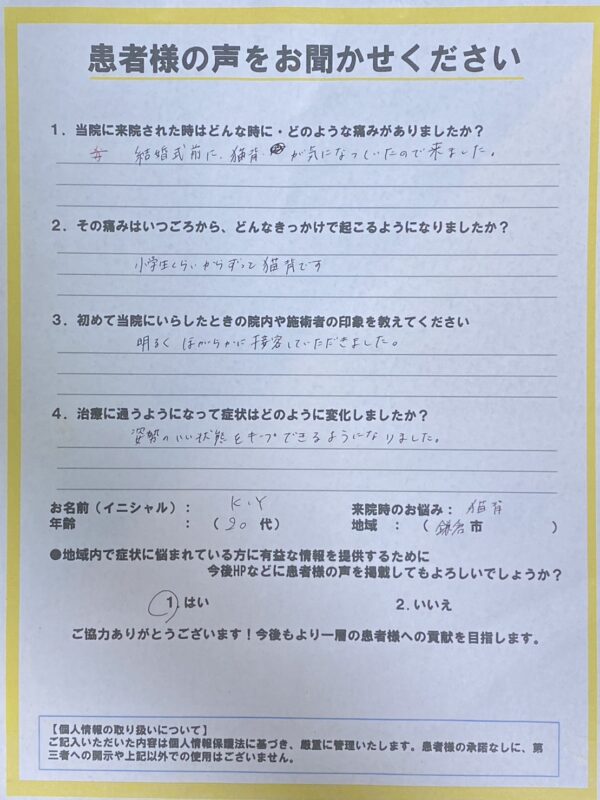 患者様の声をお聞かせください
1．当院に来院された時はどんな時に・どのような痛みがありましたか？
結婚式前に、猫背が気になっていたので来ました。
2．その痛みはいつごろから、どんなきっかけで起こるようになりましたか？
小学生くらいからずっと猫背です
3．初めて当院にいらしたときの院内や施術者の印象を教えてください
明るくほがらかに接客していただきました。
4．治療に通うようになって症状はどのように変化しましたか？
姿勢のいい状態をキープできるようになりました。
お名前（イニシャル）： K.Y 来院時のお悩み： 猫背
年齢 ：（20 代） 地域 ：（鎌倉市 ）
●地域内で症状に悩まれている方に有益な情報を提供するために
今後HPなどに患者様の声を掲載してもよろしいでしょうか？
1.はい 2.いいえ
ご協力ありがとうございます！今後もより一層の患者様への貢献を目指します。
【個人情報の取り扱いについて】
ご記入いただいた内容は個人情報保護法に基づき、厳重に管理いたします。患者様の承諾なしに、第
三者への開示や上記以外での使用はございません。